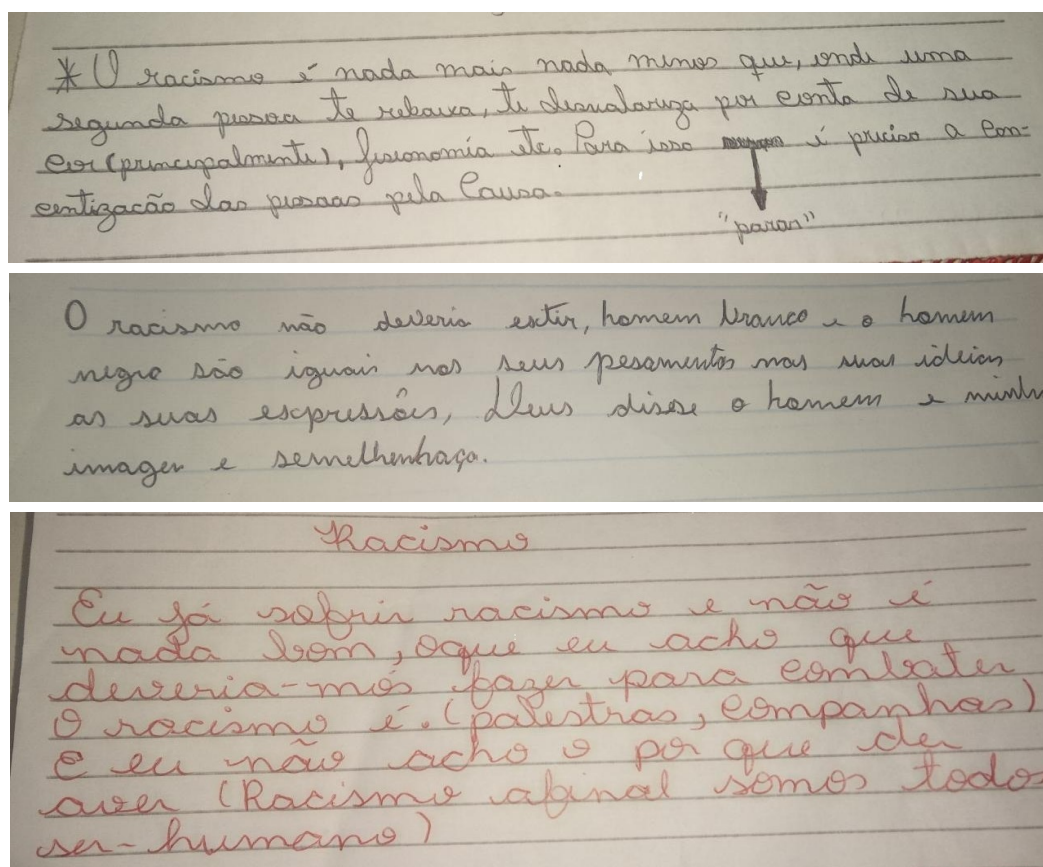 * O racismo é nada mais nada menos que, onde uma
segunda pessoa te rebaixa, te desvalariza por conta de sua
cor (principalmente), fisionomia etc. Para isso é preciso a con-
centização das pessoas pela Causa.
"parar"
O racismo não deveria extir, homem branco e o homem
negro são iguais nos seus pesamentos nas suas ideias
as suas escpressões, Deus disese o homem e minh
imager e semelhenhaço.
Racismo
Eu já sofrir racismo e não é
nada bom, oque eu acho que
deveria-mós fazer para combater
o racismo é. (palestras, companhas)
e eu não acho o por que de
aver (Racismo afinal somos todo
ser-humano)